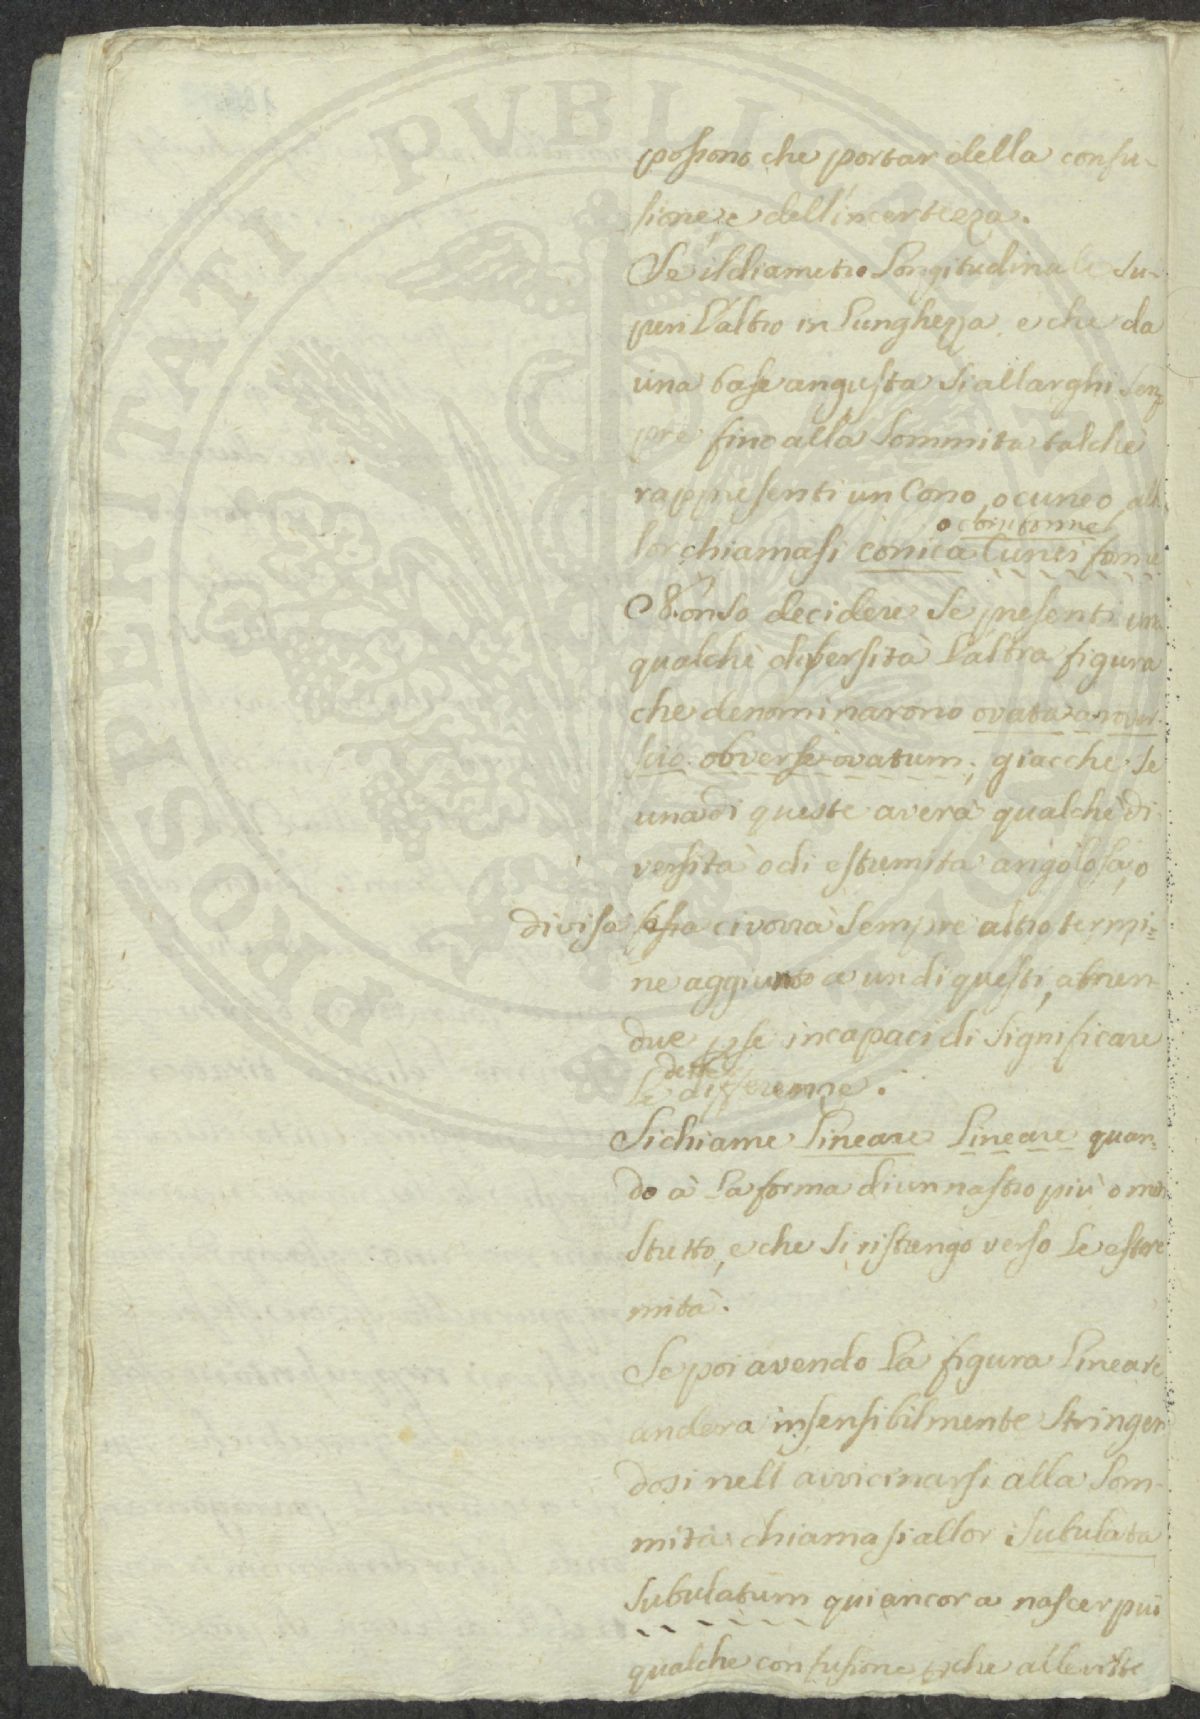 possono che portar della confu-
sione, e dell'incertezza.
Se il diametro Longitudinale su-
peri l'altro in lunghezza e che da
una base angusta si allarghi sem
pre fino alla sommita talche
rappresenti un Cono, o cuneo, al
lor chiamasi conica o Cuneiforme
Non so decidere se presenti una
qualche diversità l'altra figura
che denominarono ovata a rover-
scio obverse ovatum, giacche se
una di queste averà qualche di
versità o di estremita angolosa, o
divisa ci vorrà sempre altro termi-
ne aggiunto a un di questi, amen-
due p se incapaci di significare
le dette differenze.
Si chiame Lineare Lineare quan-
do à la forma di un nastro più o men
stretto, e che si ristringo verso le estre
mità.
Se poi avendo la figura lineare
andera insensibilmente stringen
dosi nell avvicinarsi alla som-
mità chiamasi allor Subulata
Subulatum qui ancora nascer può
qualche confusione che alle volte
PROSPERITATI PUBLICAE